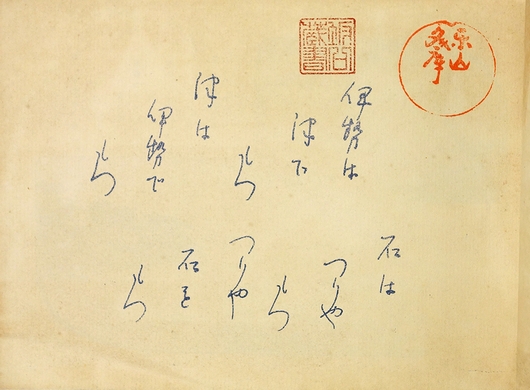 伊勢は
津で
もつ
津は
伊勢で
もつ
石は
つりや
もつ
つりや
石を
もつ
藏書